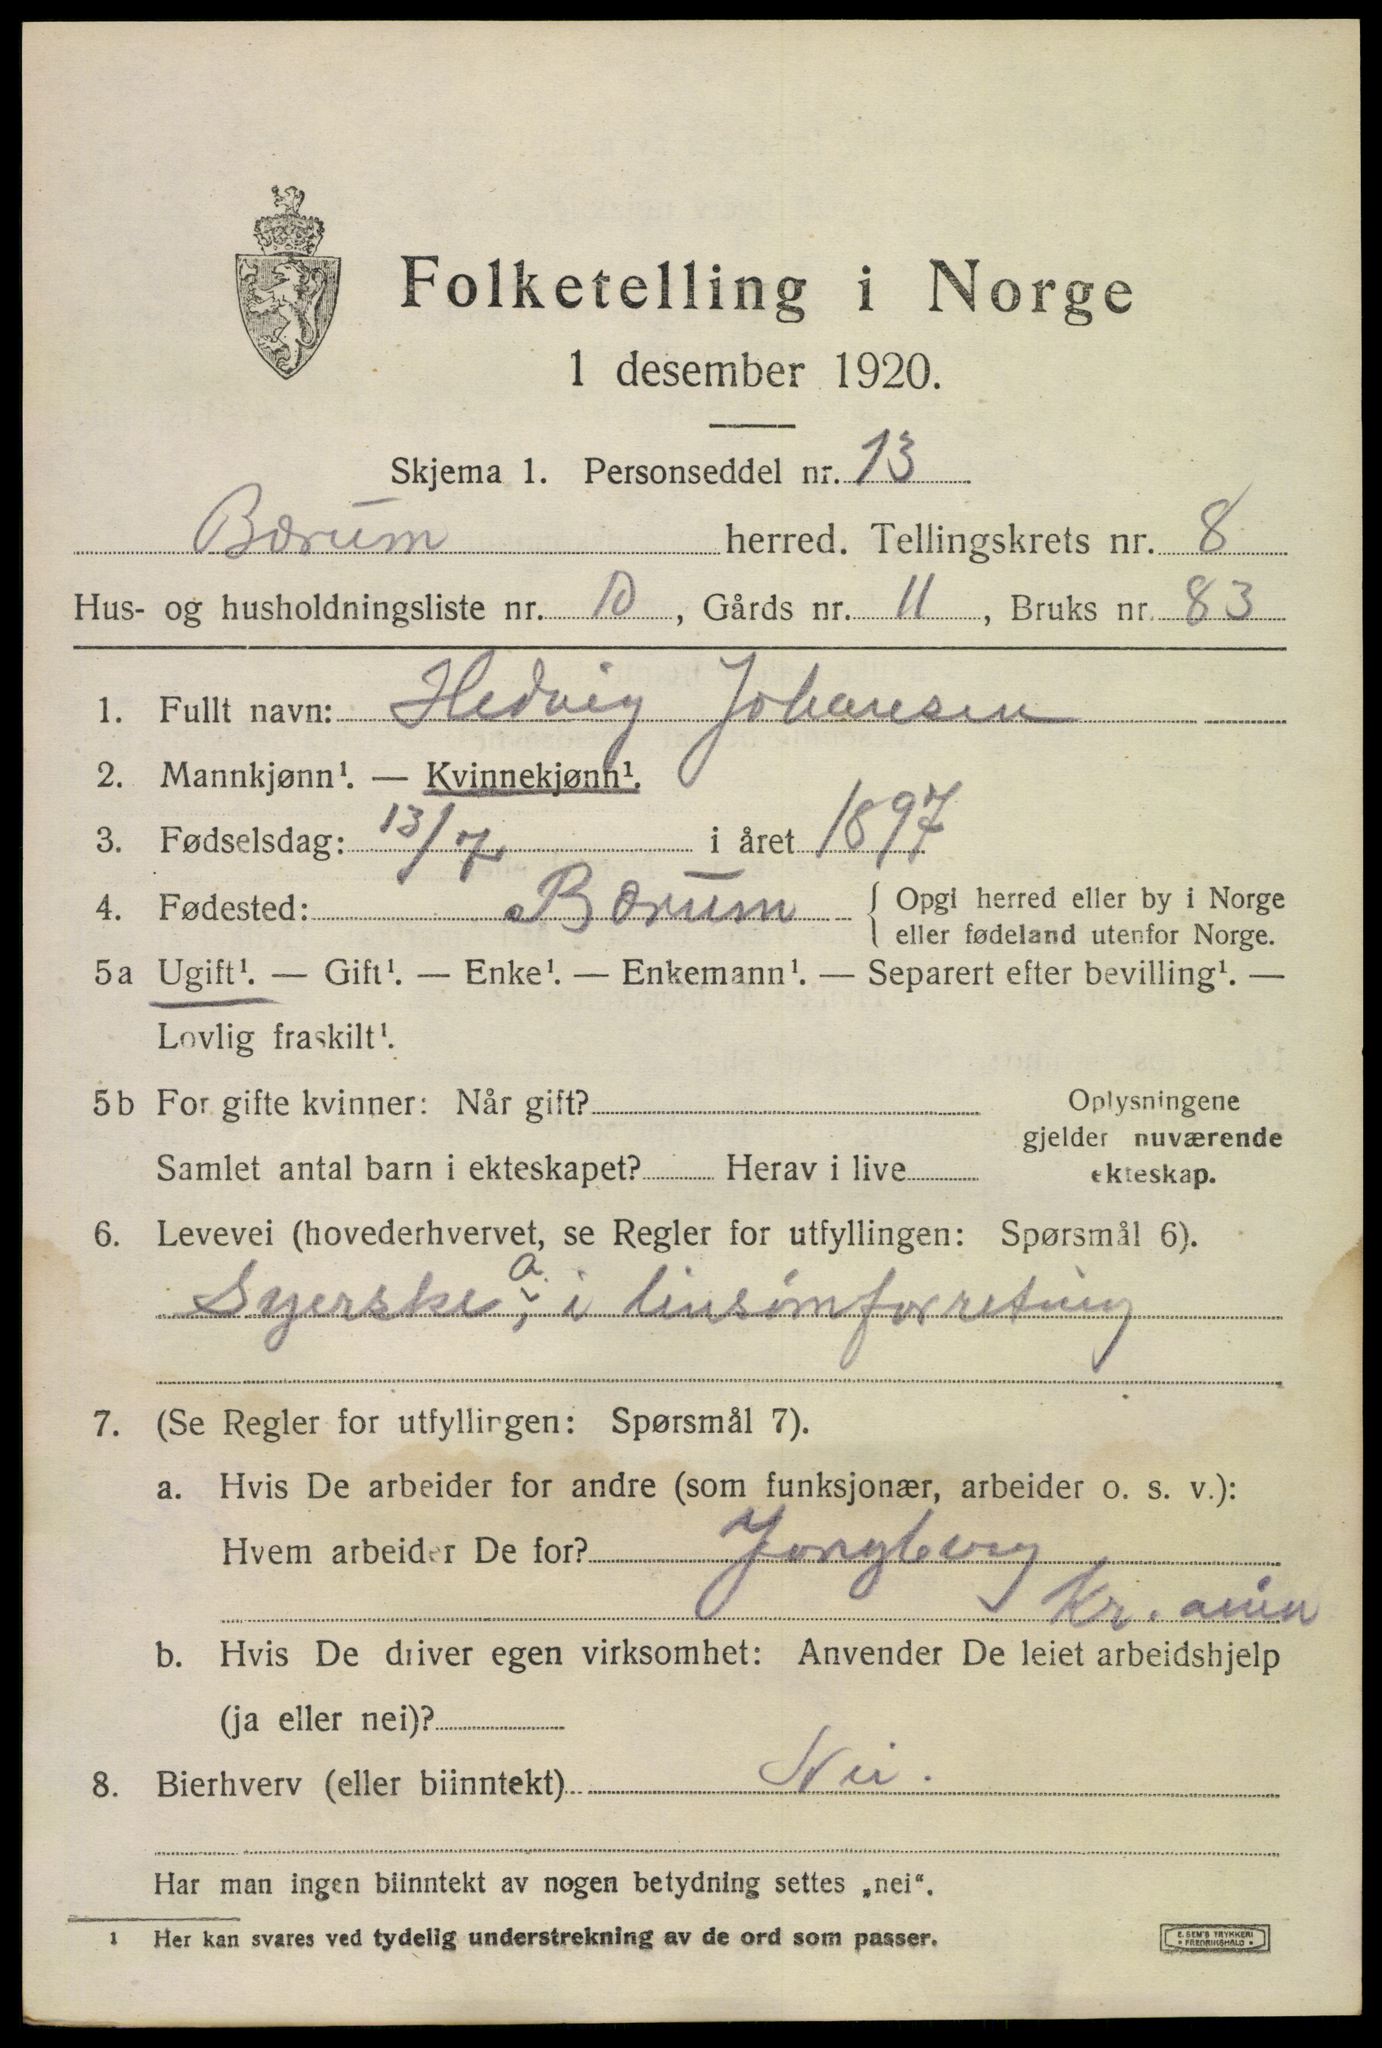 Folketelling i Norge
1 desember 1920.
Skjema 1. Personseddel nr. 13
Bærum herred. Tellingskrets nr. 8
Hus- og husholdningsliste nr. 10, Gårds nr. 11, Bruks nr. 83
1. Fullt navn: Hedvig Johansen
2. Mannkjønn¹. — Kvinnekjønn¹.
3. Fødselsdag: 13/7 i året 1897
4. Fødested: Bærum { Opgi herred eller by i Norge
eller fødeland utenfor Norge.
5a Ugift¹. — Gift¹. — Enke¹. — Enkemann¹. — Separert efter bevilling¹. —
Lovlig fraskilt¹.
5b For gifte kvinner: Når gift? Oplysningene
gjelder nuværende
Samlet antal barn i ekteskapet? Herav i live ekteskap.
6. Levevei (hovederhvervet, se Regler for utfyllingen: Spørsmål 6).
a
Syerske, i linsømforretning
7. (Se Regler for utfyllingen: Spørsmål 7).
a. Hvis De arbeider for andre (som funksjonær, arbeider o. s. v.):
Hvem arbeider De for?
Kr.ania
b. Hvis De driver egen virksomhet: Anvender De leiet arbeidshjelp
(ja eller nei)?
8. Bierhverv (eller biinntekt) Nei.
Har man ingen biinntekt av nogen betydning settes „nei“.
¹ Her kan svares ved tydelig understrekning av de ord som passer.
E. SEM'S TRYKKERI
• FREDRIKSHALD •